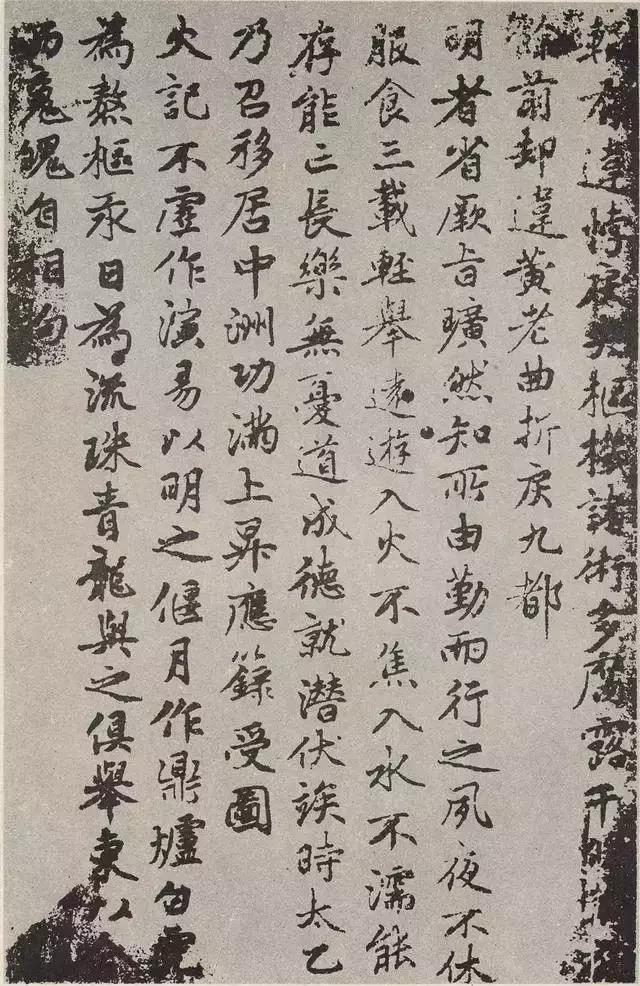 有違悖失樞機諸術多腐露千
餘前却違黃老曲折戾九都
明者省厥旨曠然知所由勤而行之夙夜不休
服食三載輕舉遠遊入火不焦入水不濡能
存能亡長樂無憂道成德就潛伏俟時太乙
乃召移居中洲功滿上昇應籙受圖
火記不虛作演易以明之偃月作鼎爐白虎
為熬樞汞日為流珠青龍與之俱舉東以合
西魂魄自相拘